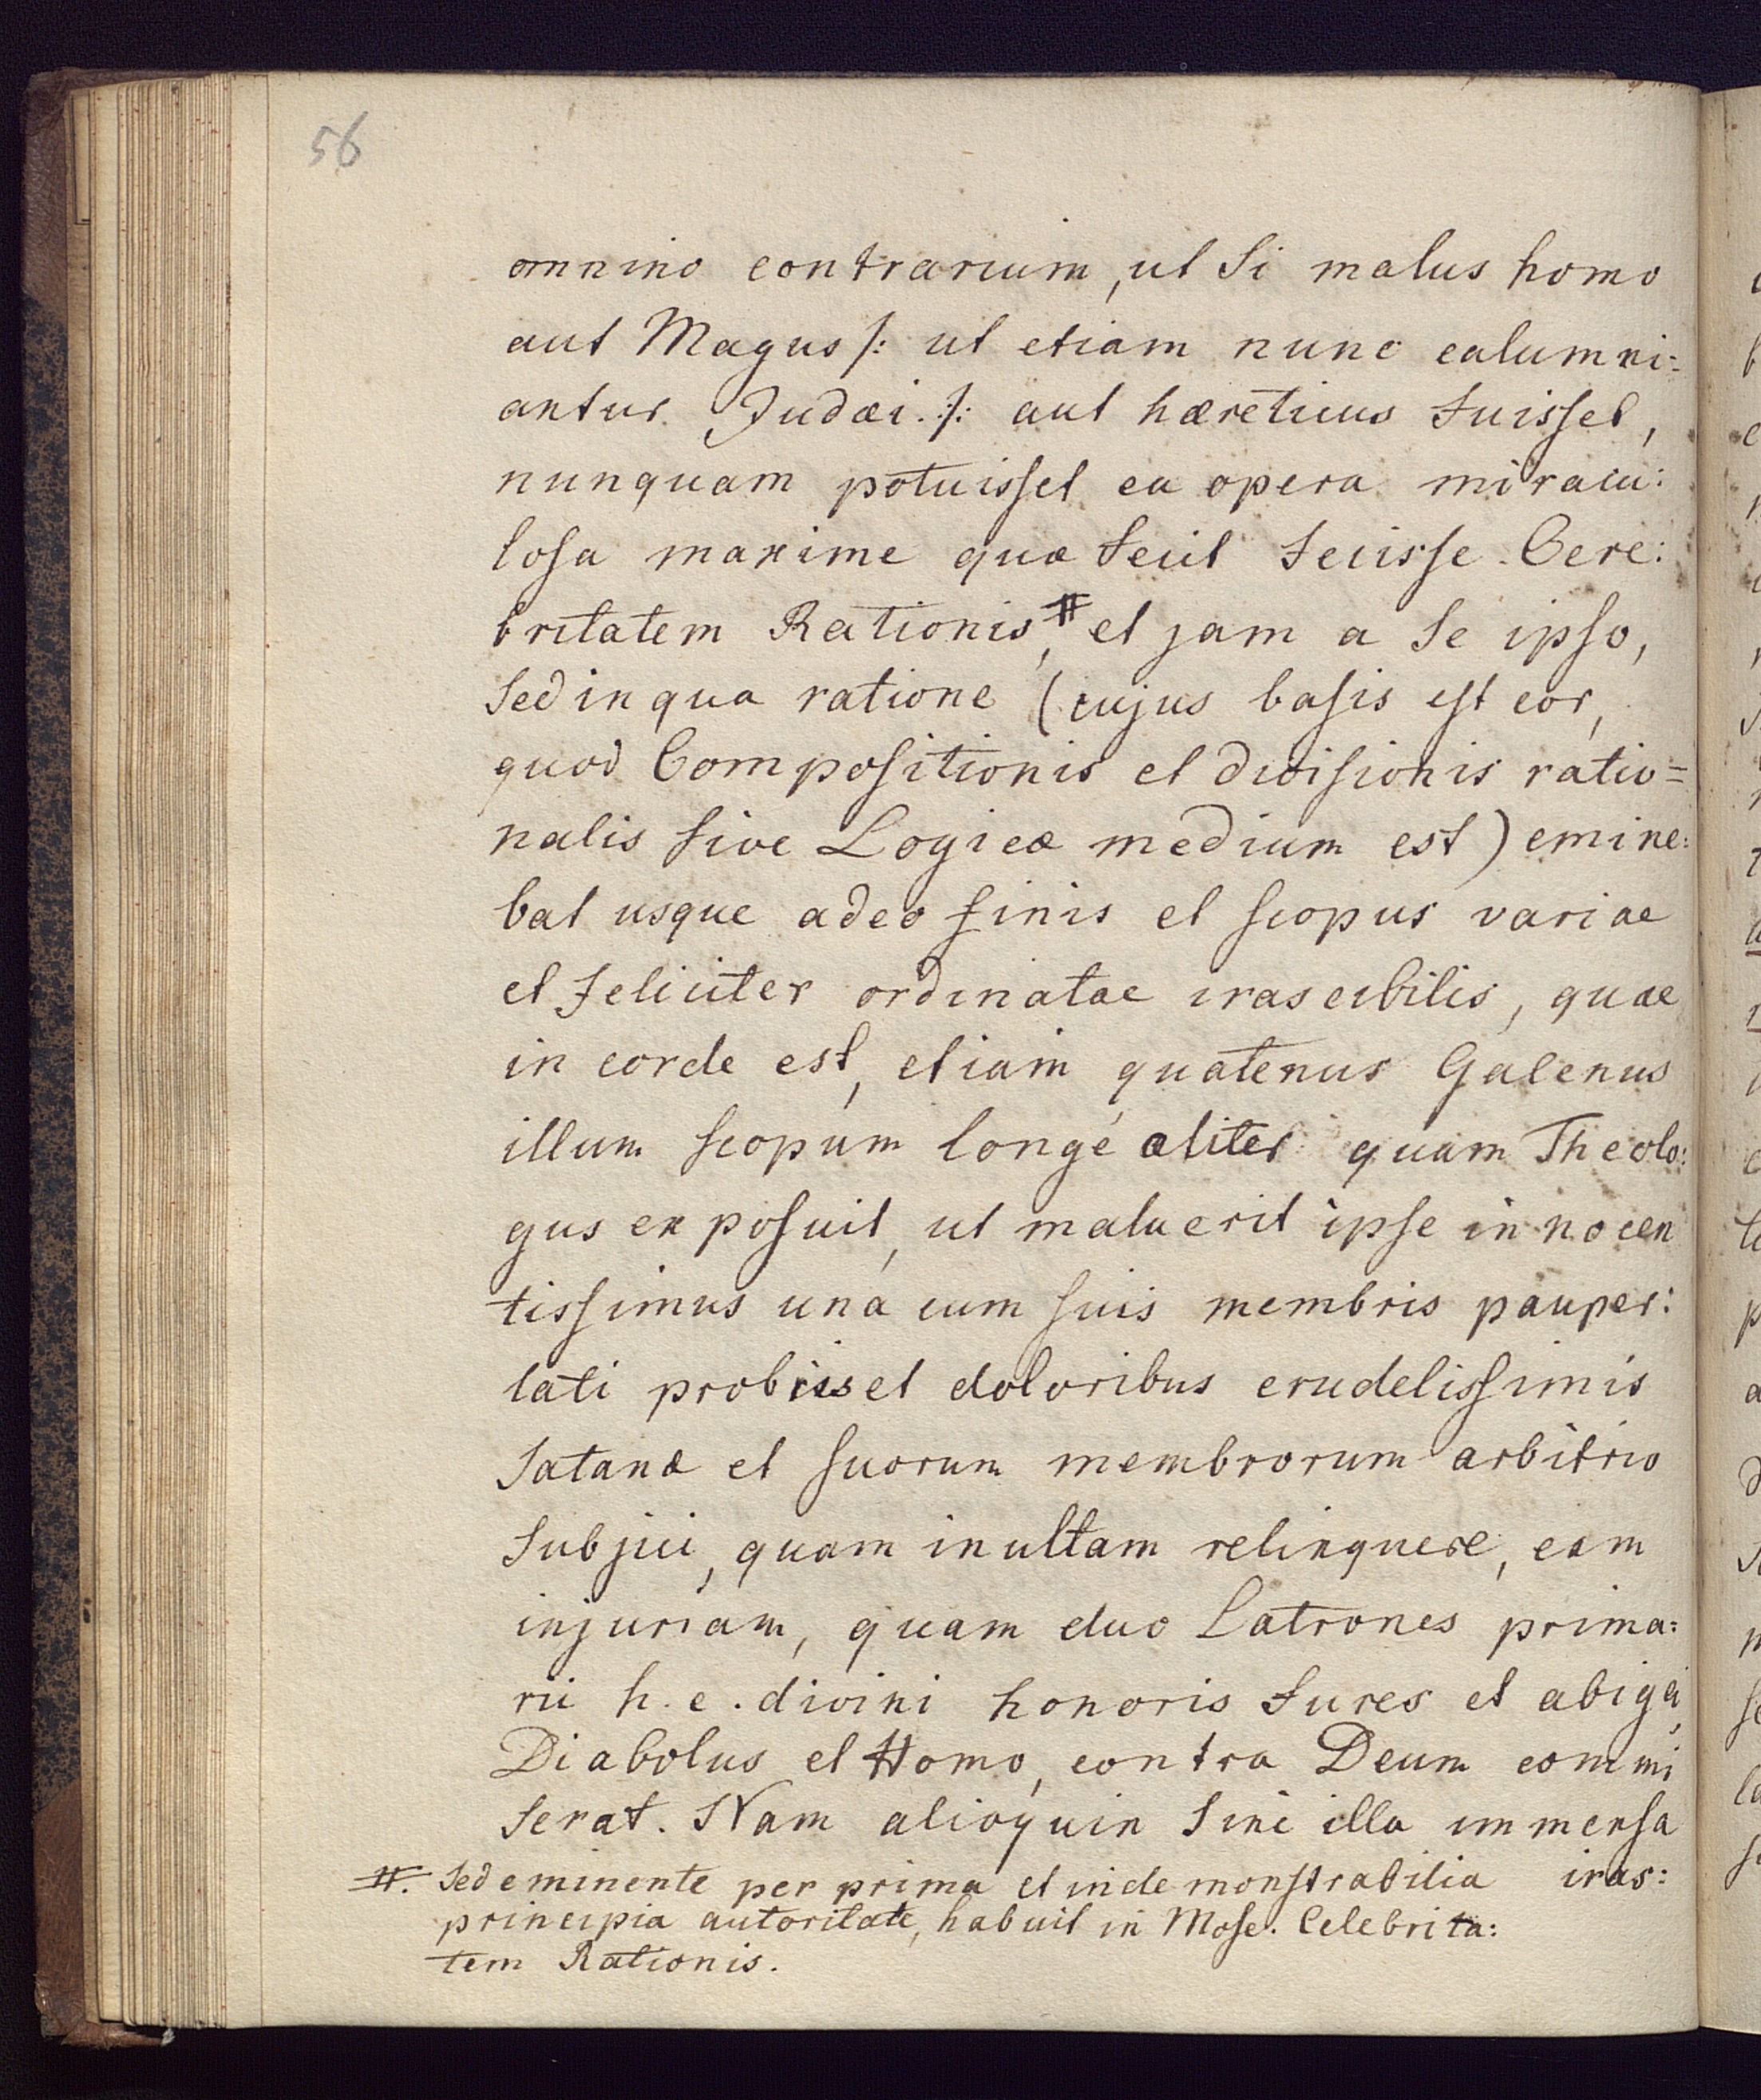 56
omnino contrarium, ut si malus homo
aut Magus /: ut etiam nunc calumni=
antur Judæi. :/: aut hæreticus fuisset,
nunquam potuisset ea opera miracu:
losa maxime quæ fecit fecisse. Cere:
britatem Rationis, # et jam a se ipso,
sed in qua ratione (cujus basis est cor,
quod Compositionis et divisionis ratio=
nalis sive Logicæ medium est) emine:
bat usque adeo finis et scopus variae
et feliciter ordinatae irascibilis, quae
in corde est, etiam quatenus Galenus
illum scopum longé aliter quam Theolo:
gus exposuit, ut maluerit ipse innocen
tissimus uná cum suis membris pauper:
tati probris et doloribus crudelissimis
Satanæ et suorum membrorum arbitrio
subjici, quam inultam relinquere, eam
injuriam, quam duo Latrones prima:
rii h. e. divini honoris fures et abigei,
Diabolus et Homo, contra Deum commi
serat. Nam alioquin sine illa immensa
iras:
#. Sed eminente per prima et indemonstrabilia
principia autoritate, habuit in Mose. Celebrita:
tem Rationis.